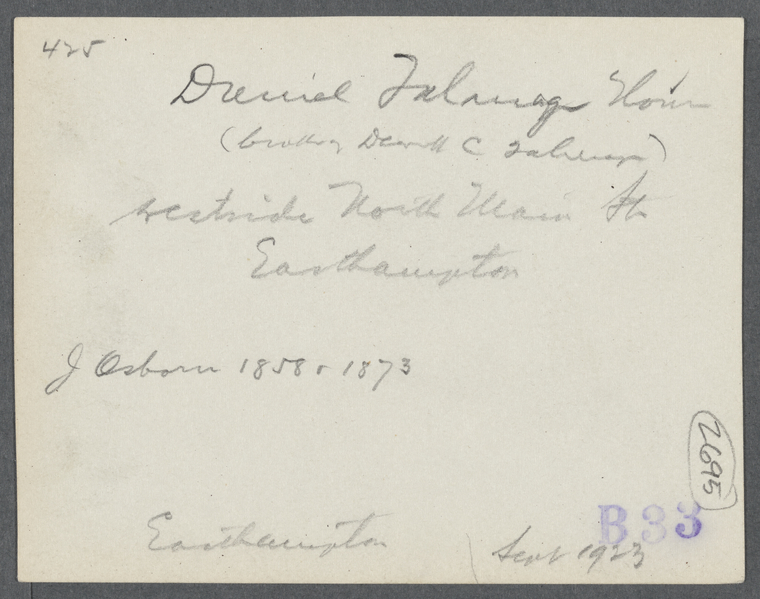 425
Daniel Talmage House
(brother Dewitt C Talmage)
westside North Main St
Easthampton
J Osborn 1858 & 1873
2695
B33
Easthampton
Sept 1923